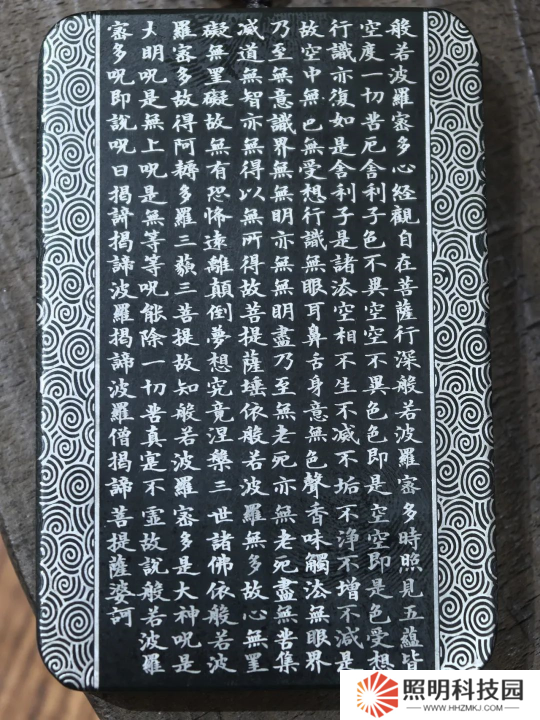 般若波羅蜜多心經觀自在菩薩行深般若波羅蜜多時照見五蘊皆
空度一切苦厄舍利子色不異空空不異色色即是空空即是色受想
行識亦復如是舍利子是諸法空相不生不滅不垢不淨不增不減是
故空中無色無受想行識無眼耳鼻舌身意無色聲香味觸法無眼界
乃至無意識界無無明亦無無明盡乃至無老死亦無老死盡無苦集
滅道無智亦無得以無所得故菩提薩埵依般若波羅無多故心無罣
礙無罣礙故無有恐怖遠離顛倒夢想究竟涅槃三世諸佛依般若波
羅蜜多故得阿耨多羅三藐三菩提故知般若波羅蜜多是大神呪是
大明呪是無上呪是無等等呪能除一切苦真實不虛故說般若波羅
蜜多呪即說呪曰揭諦揭諦波羅揭諦波羅僧揭諦菩提薩婆訶
照明科技园
WWW.HHZMKJ.COM